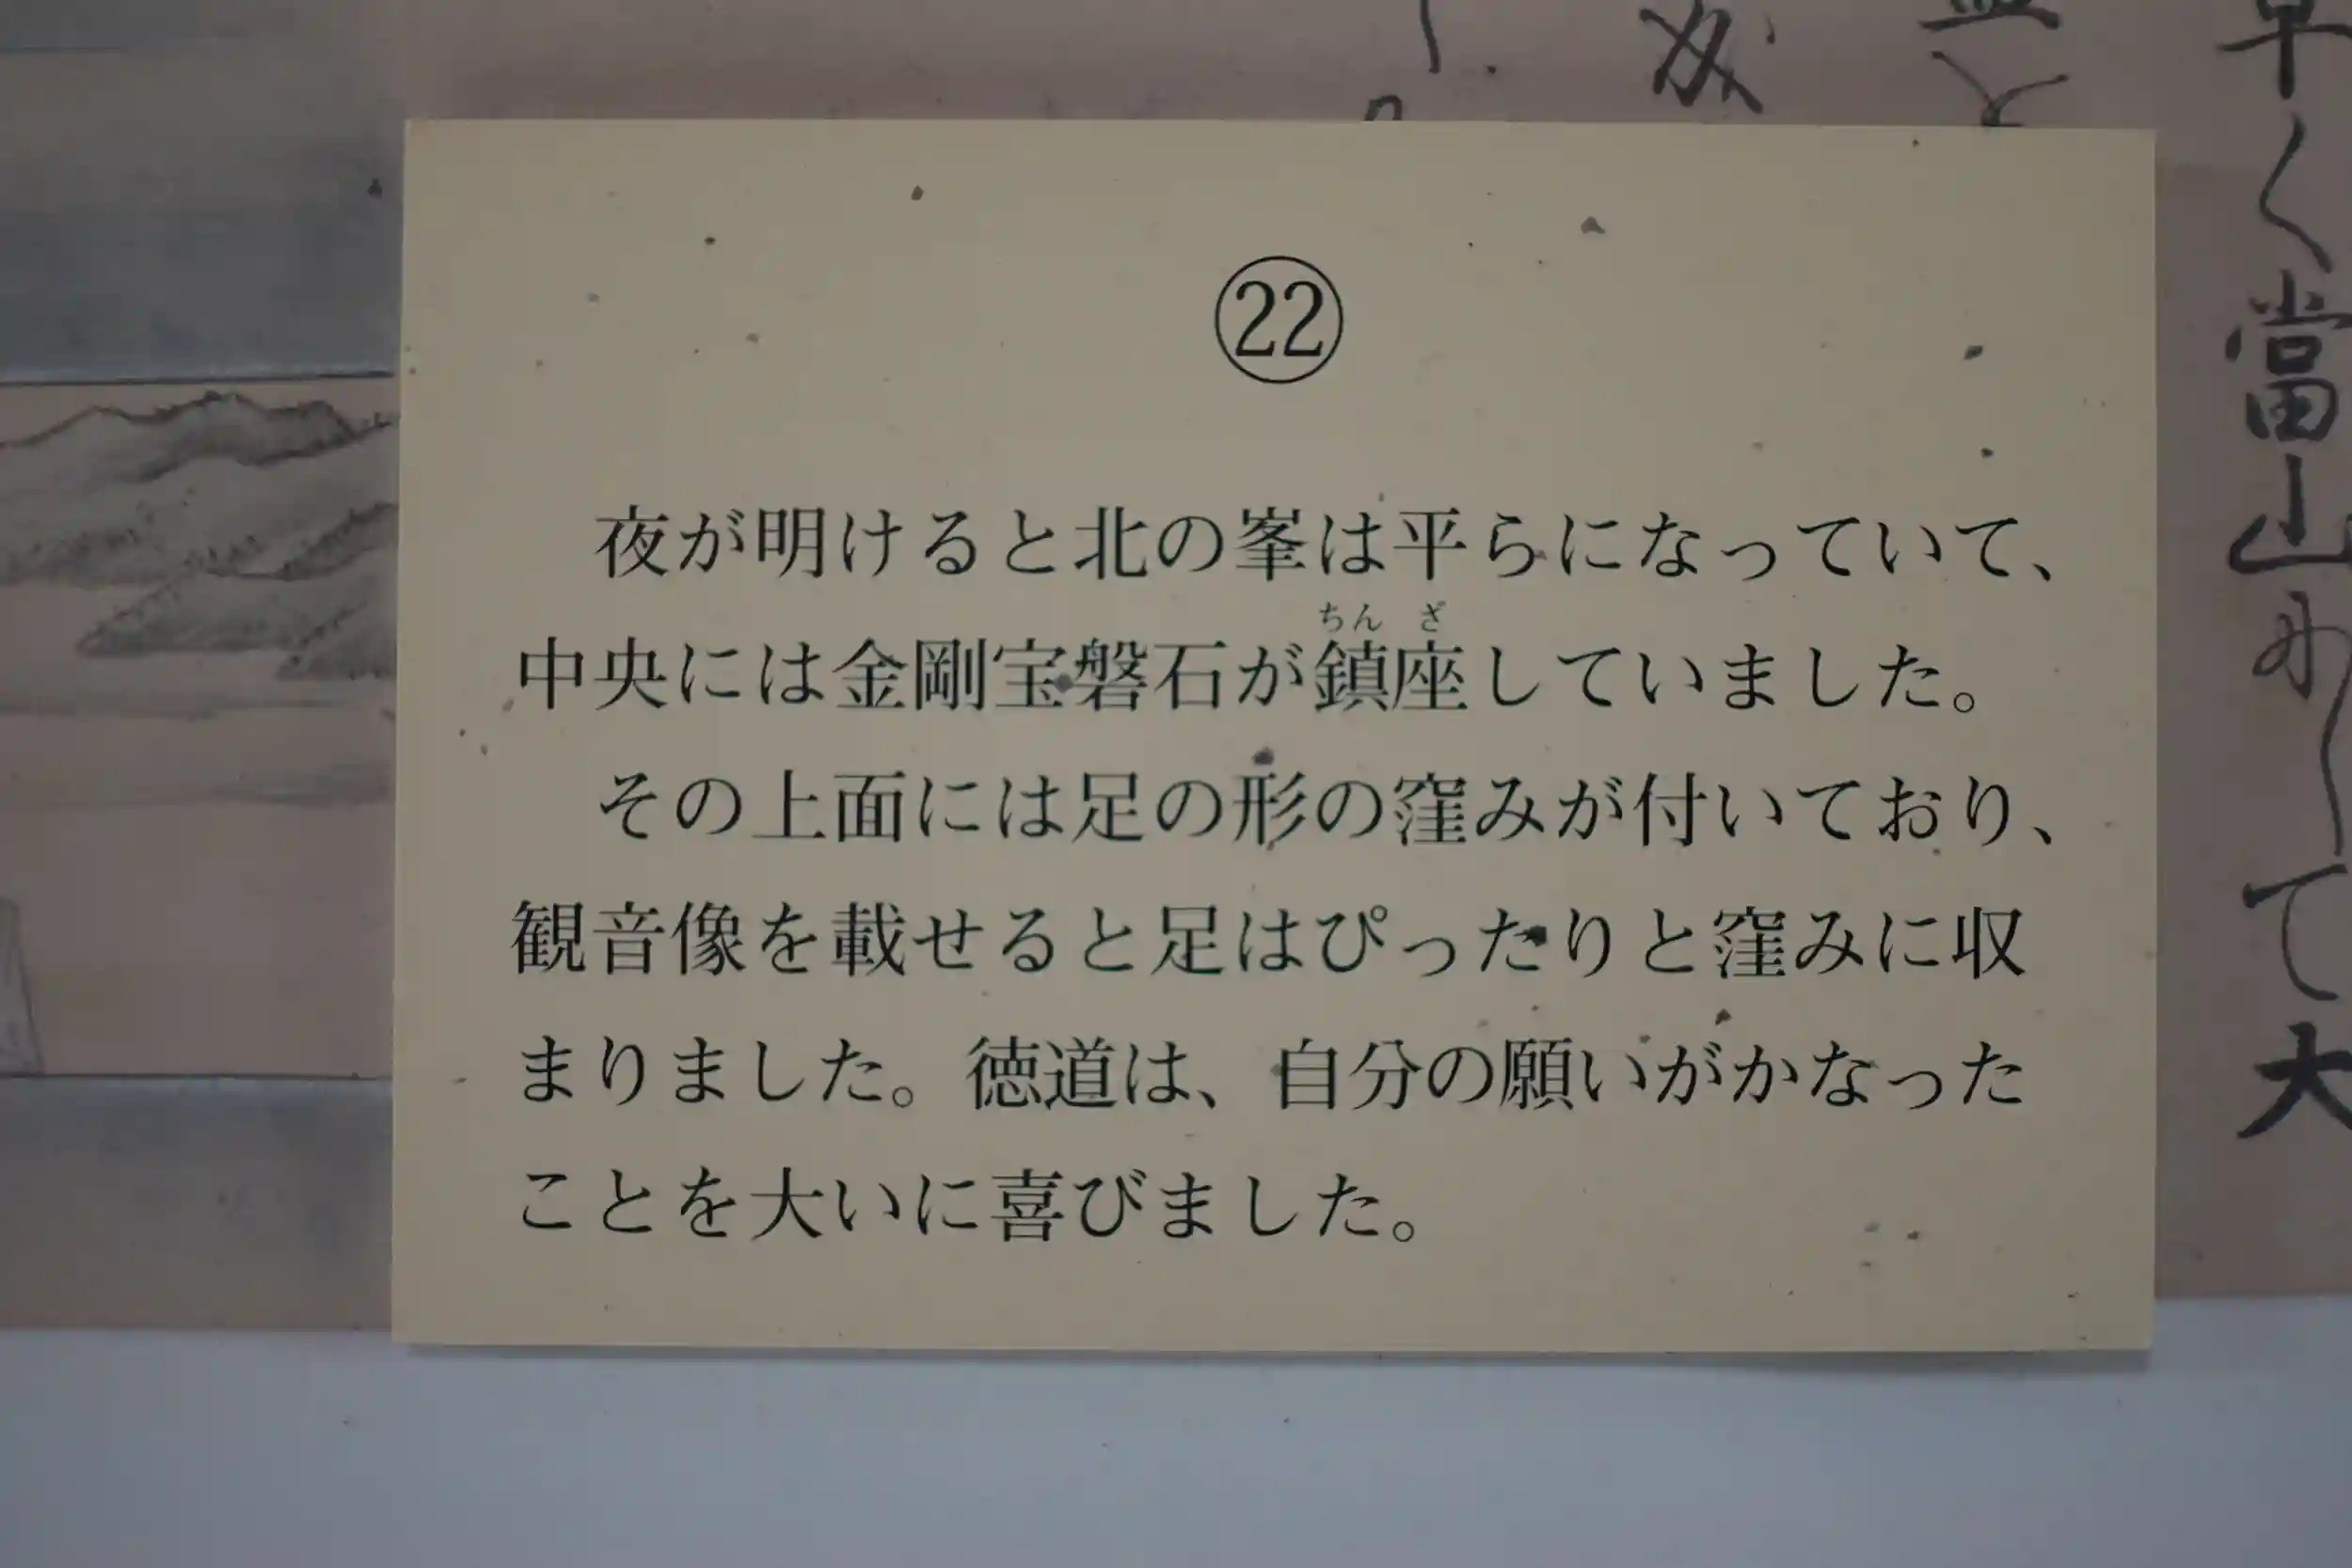 ㉒
夜が明けると北の峯は平らになっていて、
中央には金剛宝磐石が鎮座していました。
ちん ざ
その上面には足の形の窪みが付いており、
観音像を載せると足はぴったりと窪みに収
まりました。徳道は、自分の願いがかなった
ことを大いに喜びました。
く當山
て大